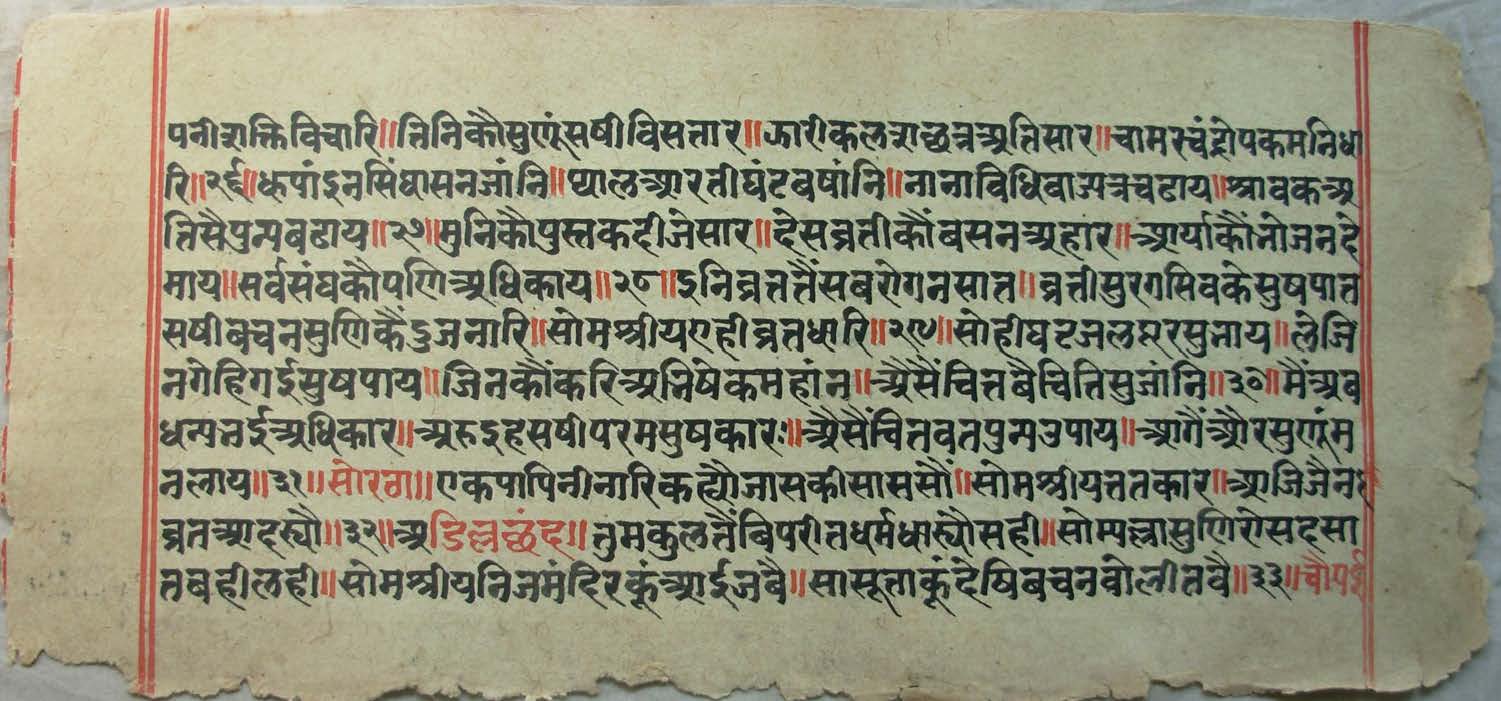 पनीशक्तिविचारि॥तिनिकौसुणूंसषीविसतार॥झारीकलशछत्रअतिसार॥चामरचंद्रोपकमनिधा
रि॥२६॥धूपांइनसिंघासनजांनि॥थालआरतीघंटबषांनि॥नानाविधिवाजत्रचढाय॥श्रावकअ
तिसैपुन्यबढाय॥२७॥मुनिकौपुस्तकदीजेसार॥देसव्रतीकौंबसनअहार॥आर्याकौंभोजनदे
माय॥सर्वसंघकौपणिअधिकाय॥२८॥इनिव्रततैंसबरोगनसात॥व्रतीसुरगसिवकेसुषपात
सषीबचनसुणिकैंदुजनारि॥सोमश्रीयगहीव्रतधारि॥२९॥सोहीघटजलभरसुभाय॥लेजि
नगेहिगईसुषपाय॥जिनकौंकरिअभिषेकमहांन॥अैसैंचितवैचितिसुजांनि॥३०॥मैंअब
धन्यभईअधिकार॥अरुइहेसषीपरमसुषकार॥अैसैंचितवतपुन्यउपाय॥आगैंऔरसुणूंम
नलाय॥३१॥सोरठा॥एकपापिनीनारिकह्यौजासकीसाससौं॥सोमश्रीयततकार॥आजिजैनह
व्रतआदर्यौ॥३२॥अडिल्लछंद॥तुमकुलतैंबिपरीतधर्मधार्योसही॥सोम्यल्लासुणिरोसदसा
तबहीलही॥सोमश्रीयनिजमंदिरकूंआईजबै॥सासूताकूंदेषिबचनबोलीतबै॥३३॥चौपई